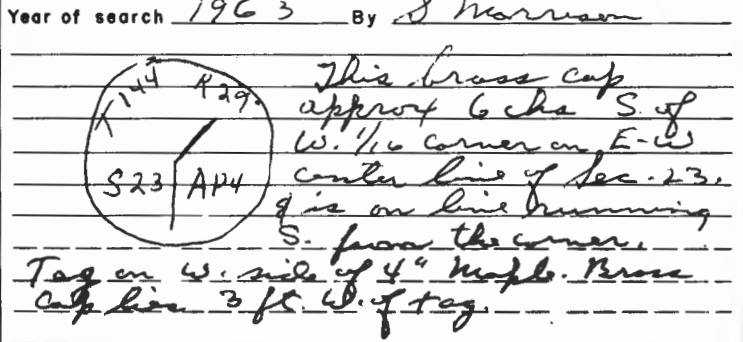 Year of search 1963 By S Morrison
T144 R29
S23 AP4
This brass cap
approx 6 chs S. of
W. 1/16 corner on E-W
center line of Sec. 23.
& is on line running
S. from the corner.
Tag on W. side of 4" Maple. Brass
Cap lies 3 ft. W. of tag.